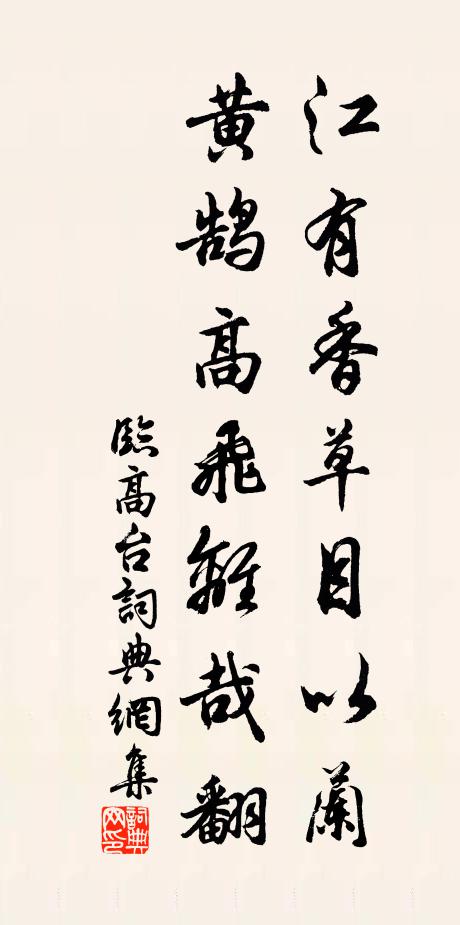 江有香草目以蘭
黃鵠高飛離哉翻
臨高台詞典網集
詞典網印